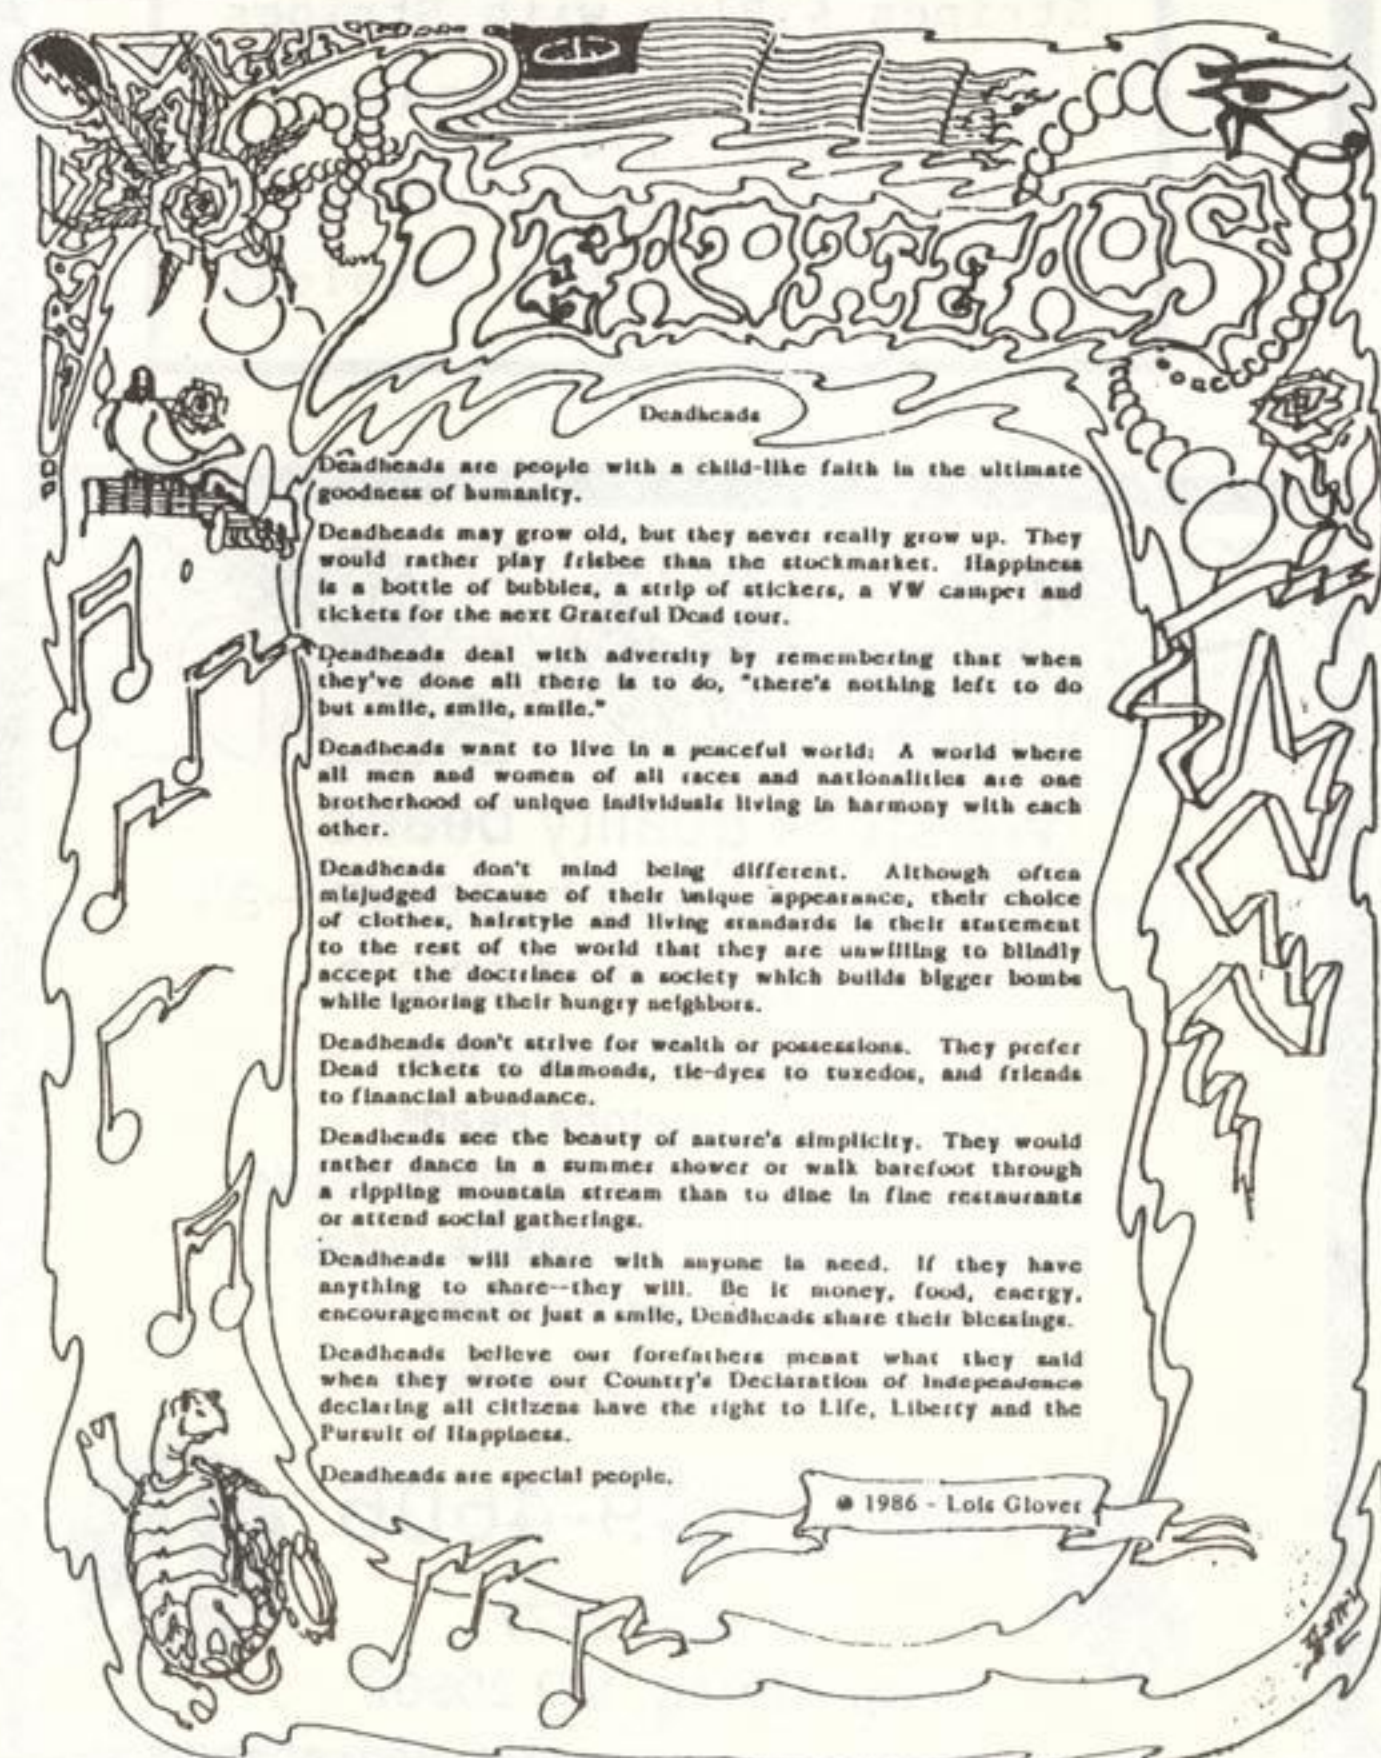 DEADHEADS
Deadheads
Deadheads are people with a child-like faith in the ultimate
goodness of humanity.
Deadheads may grow old, but they never really grow up. They
would rather play frisbee than the stockmarket. Happiness
is a bottle of bubbles, a strip of stickers, a VW camper and
tickets for the next Grateful Dead tour.
Deadheads deal with adversity by remembering that when
they've done all there is to do, "there's nothing left to do
but smile, smile, smile."
Deadheads want to live in a peaceful world: A world where
all men and women of all races and nationalities are one
brotherhood of unique individuals living in harmony with each
other.
Deadheads don't mind being different. Although often
misjudged because of their unique appearance, their choice
of clothes, hairstyle and living standards is their statement
to the rest of the world that they are unwilling to blindly
accept the doctrines of a society which builds bigger bombs
while ignoring their hungry neighbors.
Deadheads don't strive for wealth or possessions. They prefer
Dead tickets to diamonds, tie-dyes to tuxedos, and friends
to financial abundance.
Deadheads see the beauty of nature's simplicity. They would
rather dance in a summer shower or walk barefoot through
a rippling mountain stream than to dine in fine restaurants
or attend social gatherings.
Deadheads will share with anyone in need. If they have
anything to share--they will. Be it money, food, energy,
encouragement or just a smile, Deadheads share their blessings.
Deadheads believe our forefathers meant what they said
when they wrote our Country's Declaration of Independence
declaring all citizens have the right to Life, Liberty and the
Pursuit of Happiness.
Deadheads are special people.
© 1986 - Lois Glover